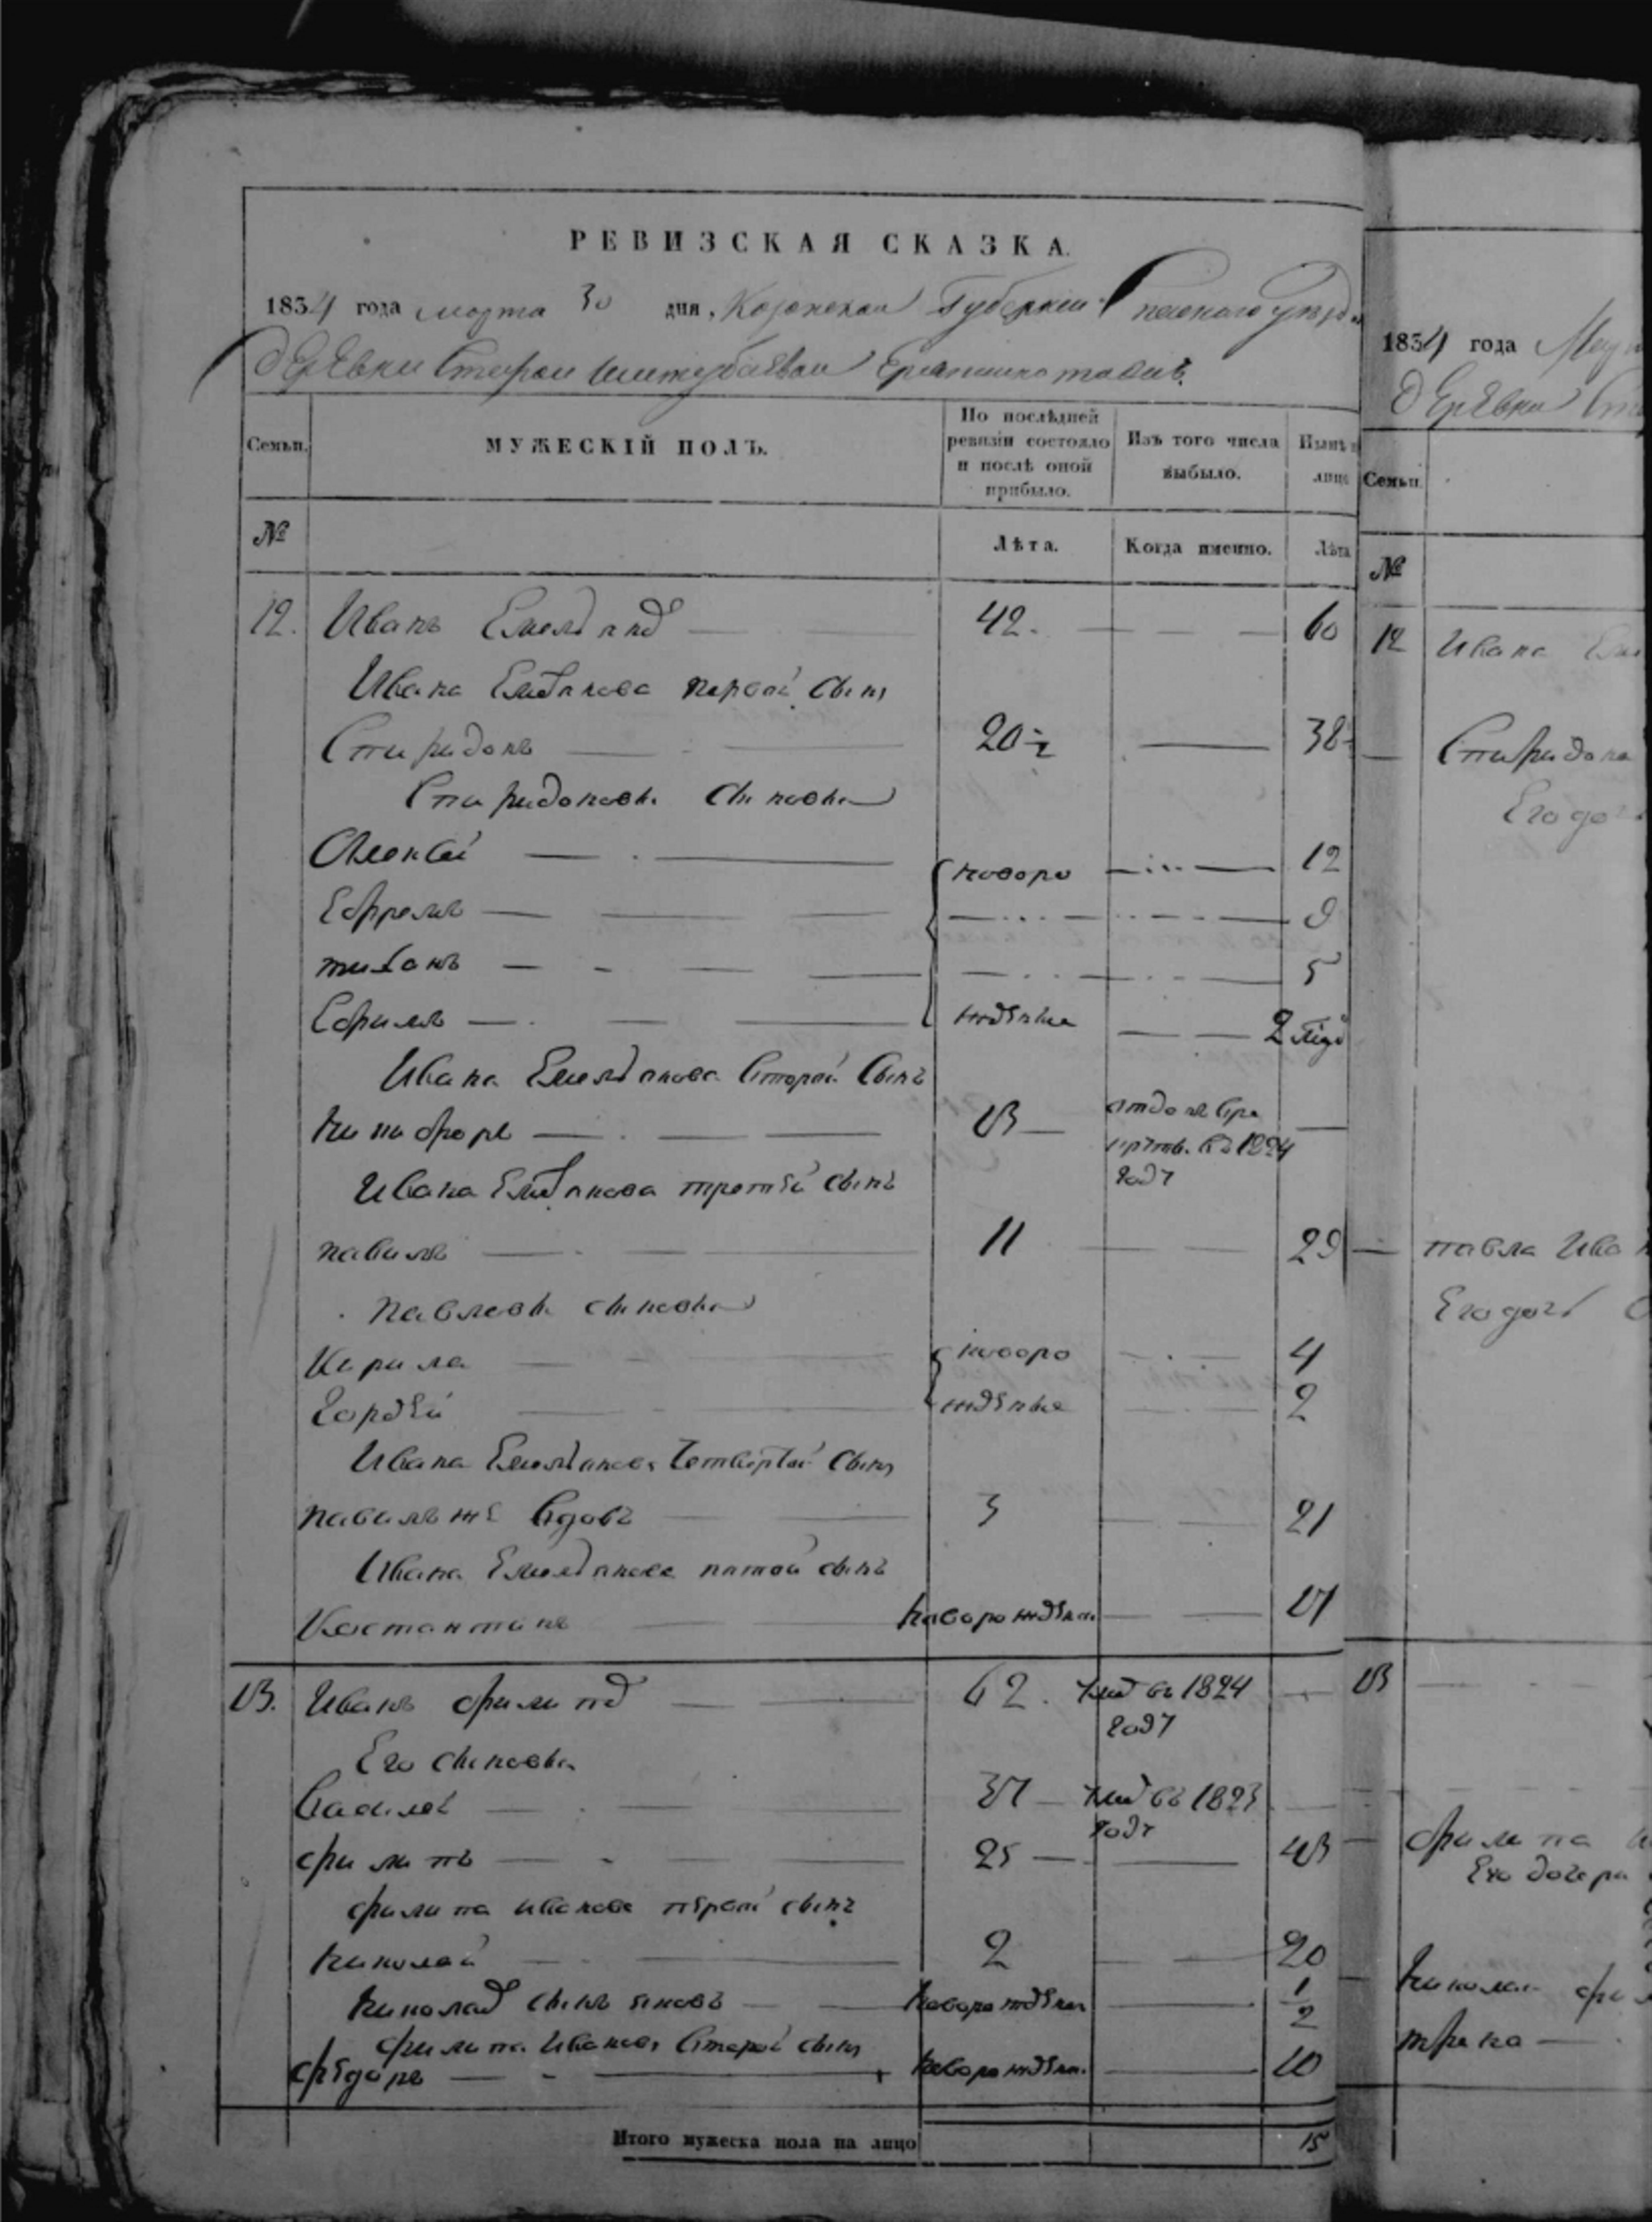 РЕВИЗСКАЯ СКАЗКА.
1834 года марта 30 дня, Казанской Губернии Спаского уезда
деревни Старой
Семьи. МУЖЕСКІЙ ПОЛЪ. По послѣдней ревизіи состояло и послѣ оной прибыло. Изъ того числа выбыло. Нынѣ на лицо
№ Лѣта. Когда именно. Лѣта
12. Иванъ Емельянъ 42. 60
Ивана Емельянова первой сынъ
Спиридонъ 20 1/2 38
Спиридоновы сыновья
Алексей новоро 12
Ефремъ 9
тихонъ 5
Ефимъ жденые 2
Ивана Емельянова второй сынъ
Никифоръ 13 отдан в ре крутв. въ 1824 году
Ивана Емельянова третей сынъ
павилъ 11 29
павловы сыновья
Кирила новоро 4
Гордей жденые 2
Ивана Емельянова четвертой сынъ
павилъ же вдовъ 3 21
Ивана Емельянова пятой сынъ
Костантинъ новорожденъ 17
13. Иванъ филипъ 62. умъ въ 1824 году
Его сыновья
Василей 37 умъ въ 1823 году
филипъ 25 43
филипа иванова первой сынъ
николай 2 20
николая сынъ яковъ новорожденъ 1/2
филипа Иванова второй сынъ
фёдоръ новорожден. 10
Итого мужеска пола на лицо 15
1834 года
деревни
Семьи.
№
12 Ивана
Спиридона
Его доч
павла Ива
Его доч
13
филипа
Его дочери
николая